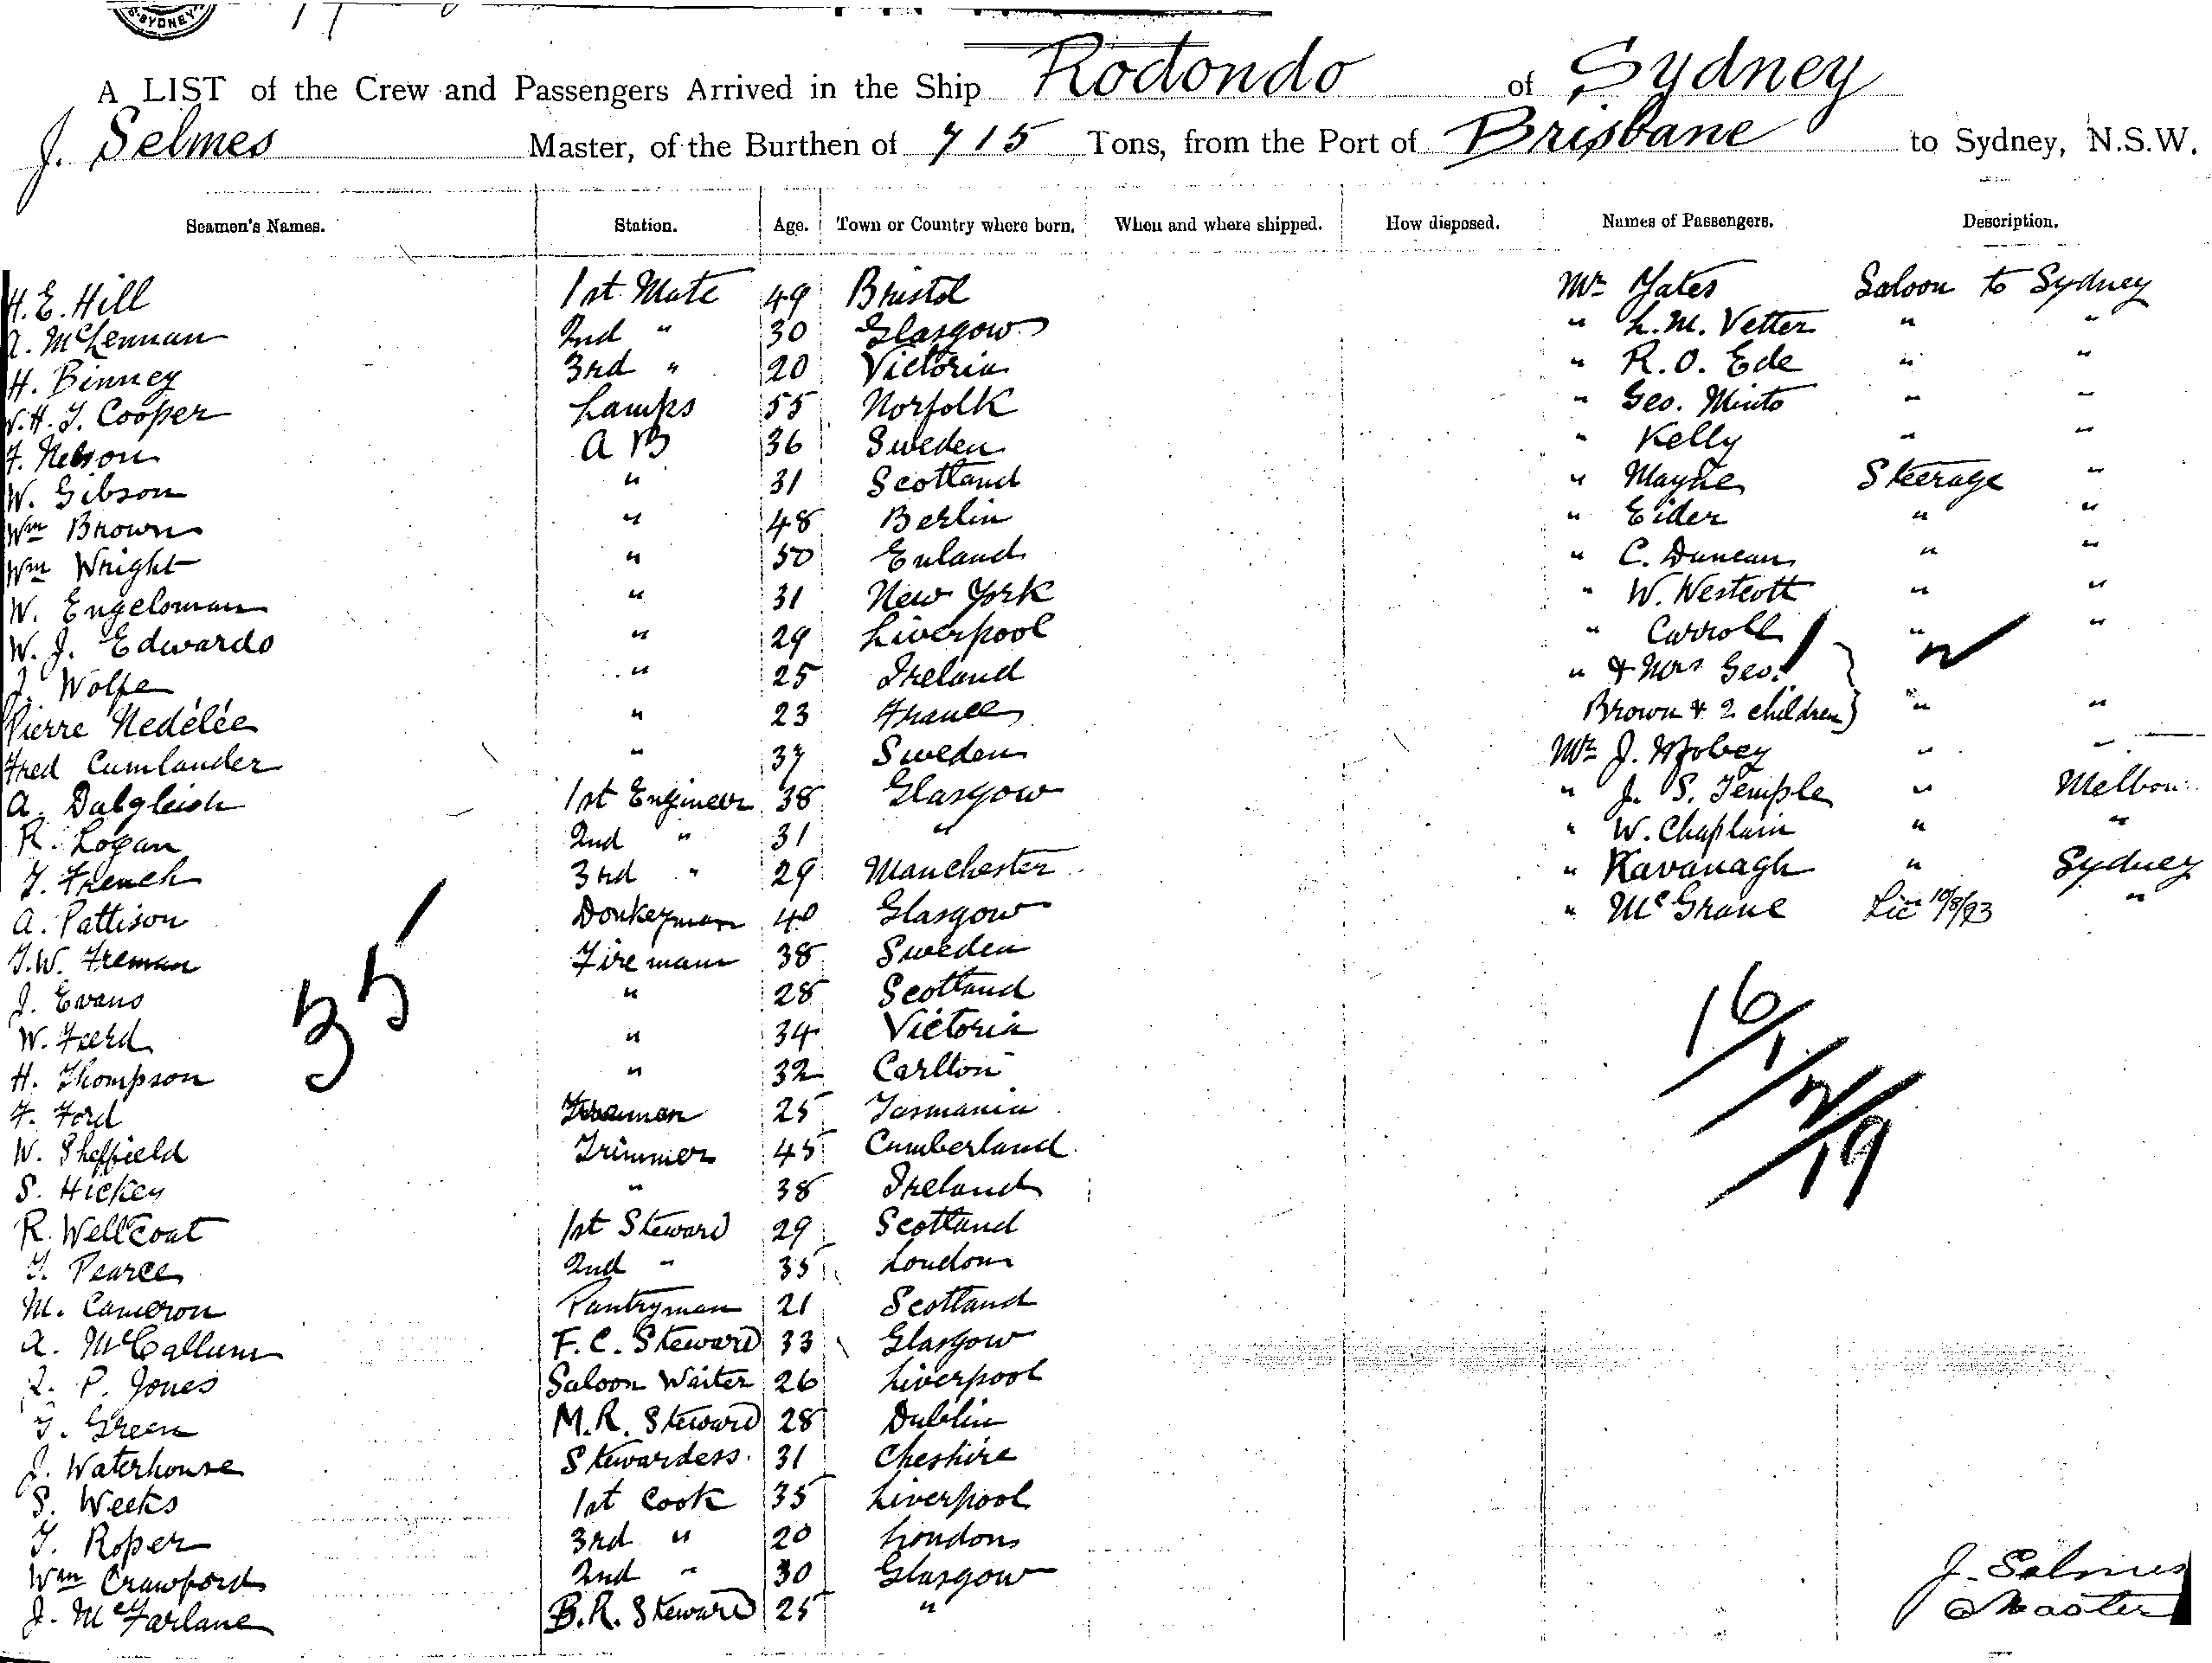 SYDNEY
A LIST of the Crew and Passengers Arrived in the Ship Rodondo of Sydney
J. Selmes Master, of the Burthen of 715 Tons, from the Port of Brisbane to Sydney, N.S.W.
Seamen's Names. Station. Age. Town or Country where born. When and where shipped. How disposed. Names of Passengers. Description.
H. E. Hill 1st Mate 49 Bristol Mr Yates Saloon to Sydney
A. McLennan 2nd " 30 Glasgow " L. M. Vetter " "
H. Binney 3rd " 20 Victoria " R. O. Ede " "
W. H. J. Cooper Lamps 55 Norfolk " Geo. Minto " "
F. Nelson A B 36 Sweden " Kelly " "
W. Gibson " 31 Scotland " Mayne Steerage "
Wm Brown " 48 Berlin " Eider " "
Wm Wright " 50 Enland " C. Duncan " "
W. Engeloman " 31 New York " W. Westcott " "
W. J. Edwards " 29 Liverpool " Carroll " "
J. Wolfe " 25 Ireland " & Mrs Geo.
Pierre Nedélée " 23 France Brown & 2 children } " "
Fred Cumlander " 37 Sweden Mr J. " "
A. Dalgleish 1st Engineer 38 Glasgow " J. S. Temple " Melbou
R. Logan 2nd " 31 " " W. Chaplain " "
T. French 3rd " 29 Manchester " Kavanagh " Sydney
A. Pattison Donkeyman 40 Glasgow " McGrane Lic 10/8/93 "
J. W. Freman Fireman 38 Sweden
J. Evans " 28 Scotland
W. " 34 Victoria
H. Thompson " 32 Carlton
F. Ford 25 Tasmania
W. Sheffield Trimmer 45 Cumberland
S. Hickey " 38 Ireland
R. Wellcoat 1st Steward 29 Scotland
T. Pearce 2nd " 35 London
M. Cameron Pantryman 21 Scotland
A. McCallum F. C. Steward 33 Glasgow
P. Jones Saloon Waiter 26 Liverpool
T. Green M.R. Steward 28 Dublin
J. Waterhouse Stewardess. 31 Cheshire
S. Weeks 1st Cook 35 Liverpool
T. Roper 3rd " 20 London
Wm Crawford 2nd " 30 Glasgow
J. McFarlane B.R. Steward 25 "
35
16/1/2/19
J. Selmes
Master